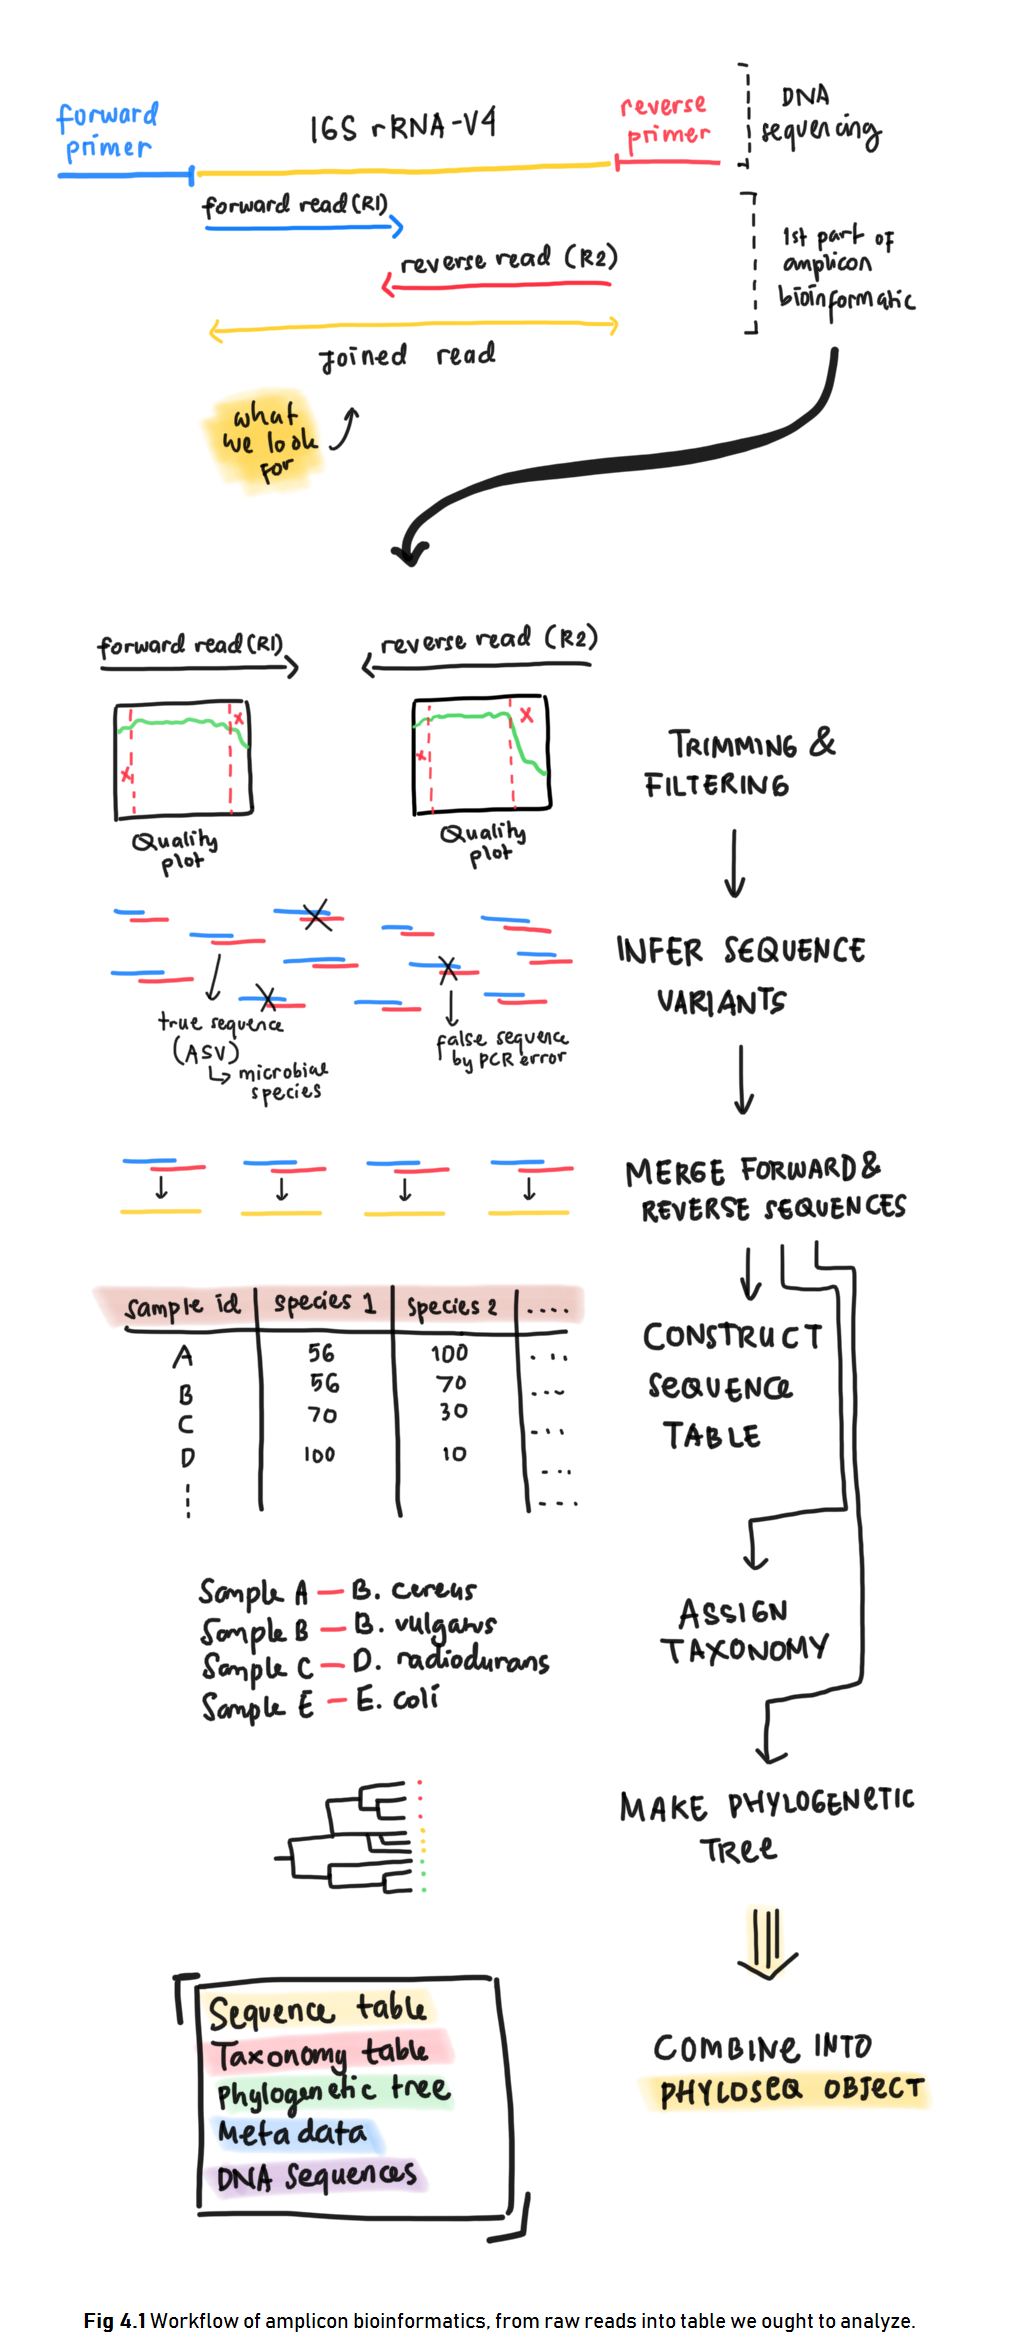 forward
primer
16S rRNA-V4
reverse
primer
DNA
sequencing
forward read (R1)
reverse read (R2)
Joined read
1st part of
amplicon
bioinformatic
what
we look
for
forward read (R1)
reverse read (R2)
x
x
x
x
Quality
plot
Quality
plot
TRIMMING &
FILTERING
INFER SEQUENCE
VARIANTS
true sequence
(ASV)
microbial
species
false sequence
by PCR error
MERGE FORWARD &
REVERSE SEQUENCES
sample id species 1 species 2 ....
A 56 100 ...
B 56 70 ...
C 70 30 ...
D 100 10 ...
...
CONSTRUCT
SEQUENCE
TABLE
Sample A — B. cereus
Sample B — B. vulgatus
Sample C — D. radiodurans
Sample E — E. coli
ASSIGN
TAXONOMY
MAKE PHYLOGENETIC
TREE
Sequence table
Taxonomy table
Phylogenetic tree
Meta data
DNA sequences
COMBINE INTO
PHYLOSEQ OBJECT
Fig 4.1 Workflow of amplicon bioinformatics, from raw reads into table we ought to analyze.